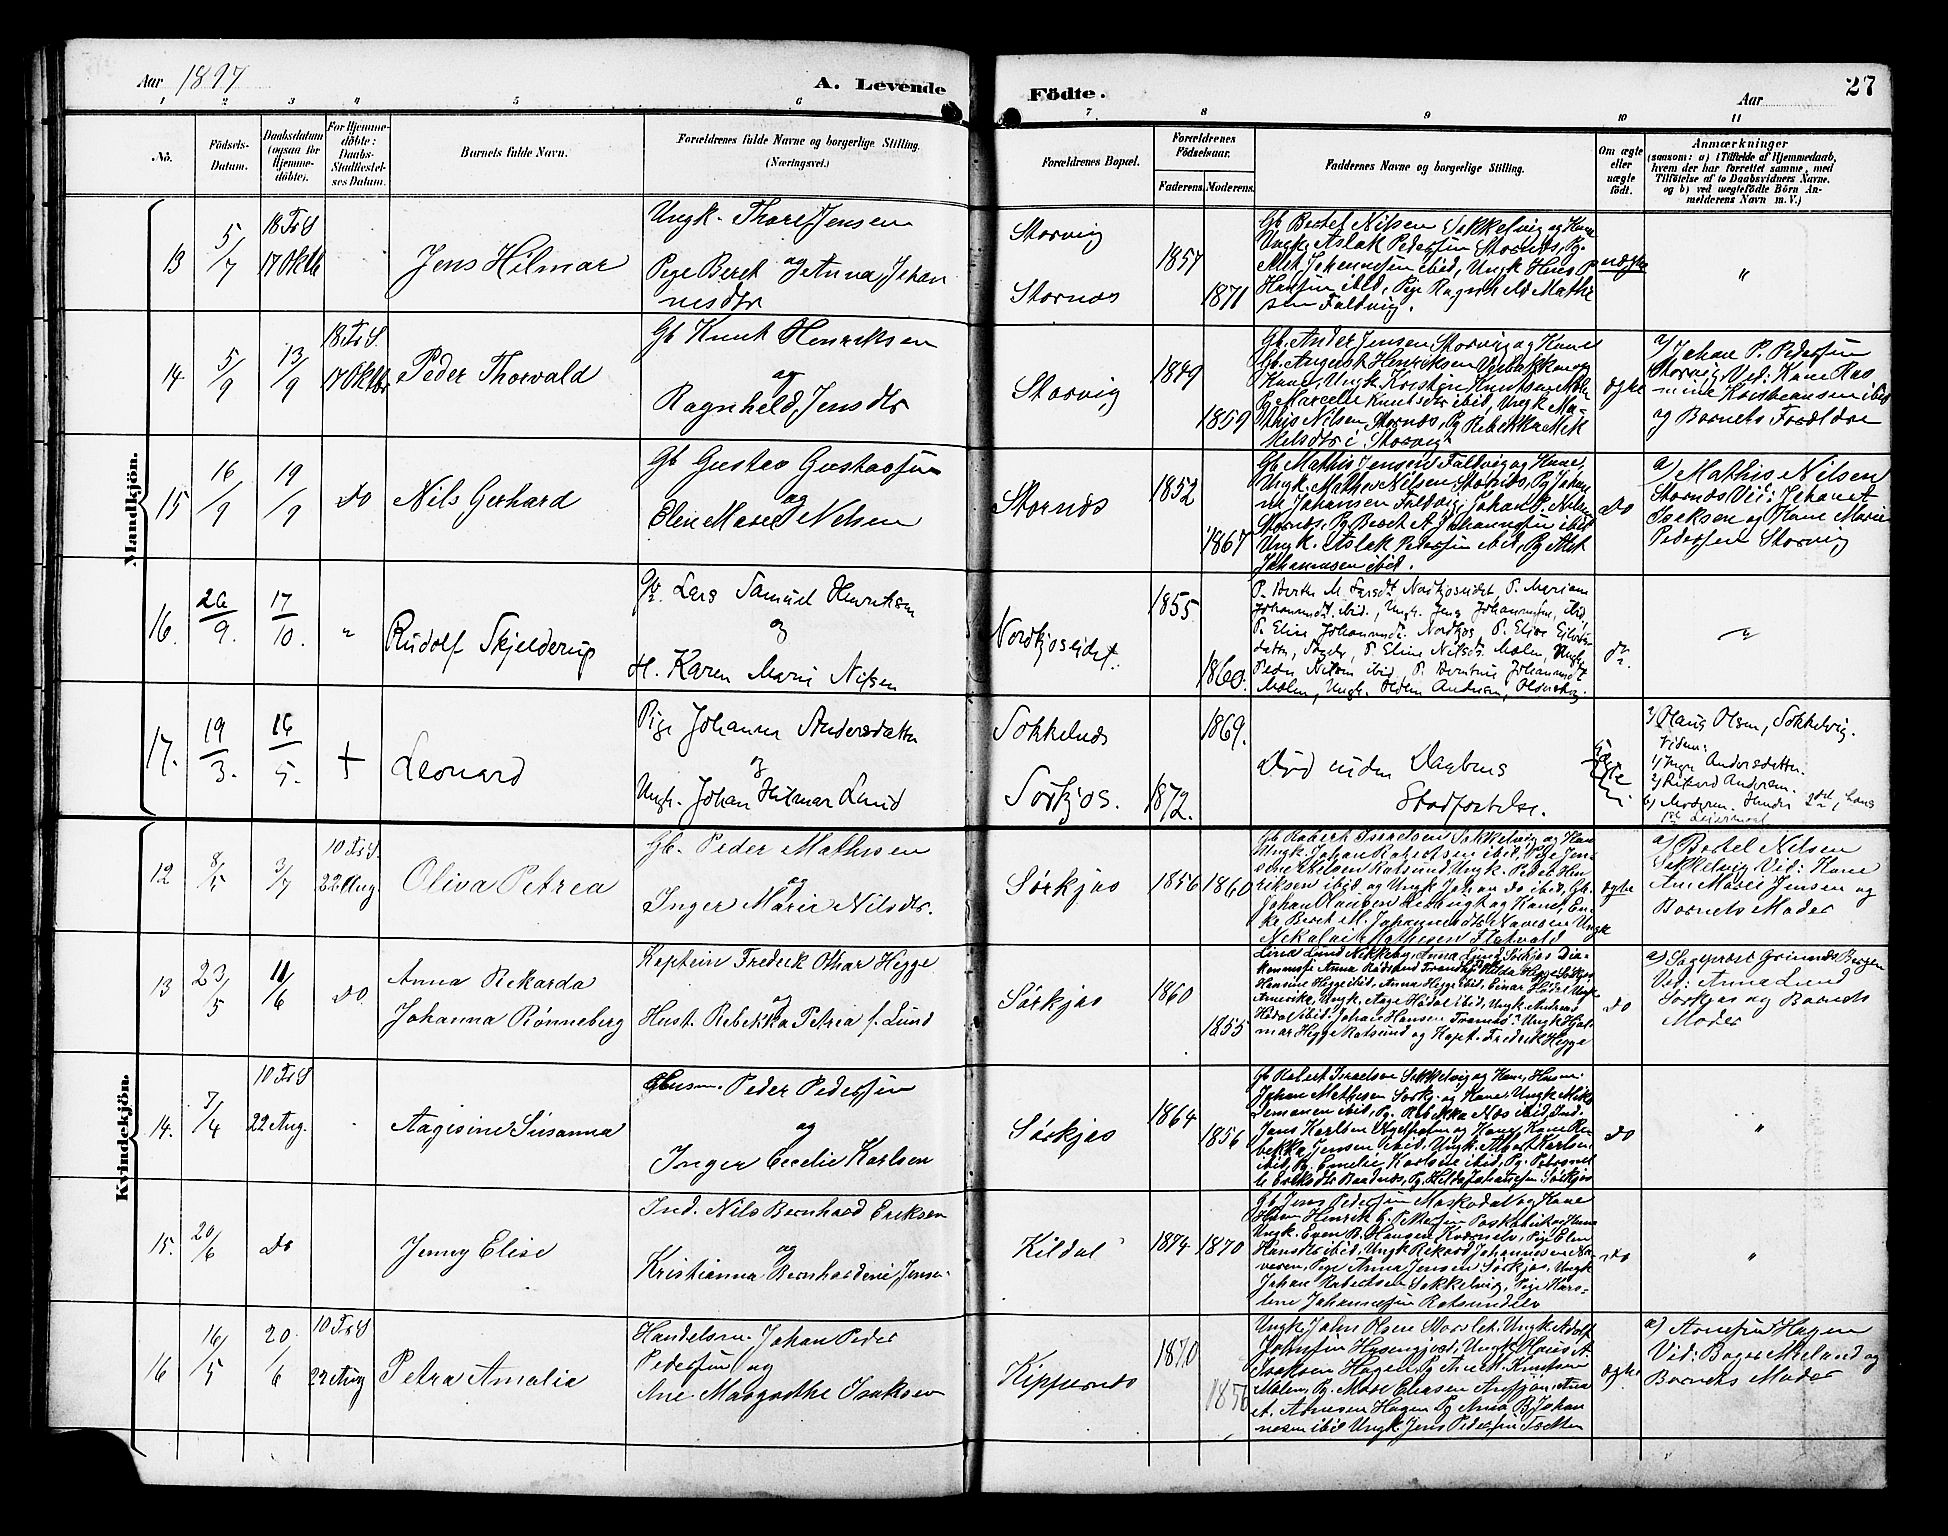 Aar 1897
A. Levende
Födte.
Aar
27
1 2 3 4 5 6 7 8 9 10 11
No.
Födsels-
Datum.
Daabsdatum
(ogsaa for
Hjemme-
döbte).
For Hjemme-
döbte:
Daabs-
Stadfæstel-
ses Datum.
Barnets fulde Navn.
Forældrenes fulde Navne og borgerlige Stilling.
(Næringsvei.)
Forældrenes Bopæl.
Forældrenes
Födselsaar.
Faderens.
Moderens.
Faddernes Navne og borgerlige Stilling.
Om ægte
eller
uægte
födt.
Anmærkninger
(saasom: a) i Tilfælde af Hjemmedaab,
hvem der har forrettet samme, med
Tilföielse af to Daabsvidners Navne,
og b) ved uægtefödte Börn An-
melderens Navn m. V.)
Mandkjön.
13
5/7
18 Tr S
17 Oktb
Jens Hilmar
Ungk. Thore Jensen
og
Pige Beret Anna Johan
nesdtr
Storvig
Stornæs
1857
1871
Gb Bertel Nilsen Sokkelvig og Kone
Ungk. Aslak Pedersen Stornæs, Pg
Met Johannesen ibid, Ungk Hans P
Hansen ibid, Pige Ragnhild Mathi
sen Faldvig.
uægte
"
14
5/9
13/9
18 Tr S.
17 Oktbr
Peder Thorvald
Gb Knut Henriksen
og
Ragnhild Jensdtr
Storvig
1849
1859
Gb. Ander Jensen Storvig og Kone
Gb. August Henriksen
Kone, Ungk. Kristen Knutsen
Pg Marcelie Knutsdtr ibid, Ungk Ma-
this Nilsen Stornæs, Pg Rebekka Mik
kelsdtr i Storvig
ægte
a) Johan P. Pedersen
Storvig. Vid: Kone Ras
mine Kristiansen ibid
og Barnets Forældre
15
16/9
19/9
do
Nils Gerhard
Gb Gustav Gustavsen
og
Elen Marie Nilsen
Stornæs
1852
1867
Gb Mathis Jensen Faldvig og Kone,
Ungk. Mathis Nilsen Stornæs, Pg Johan
ne Johansen Faldvig, Johan P. Nilsen
Stornæs, Pg Beret A Johannesen ibid
Ungk. Aslak Pedersen ibid, Pg Met
Johannesen ibid.
do
a) Mathis Nilsen
Stornæs Vid: Johan
Isaksen og Kone Marie
Pedersen Storvig
16.
26/9.
17/10.
"
Rudolf Skjelderup
Gb. Lars Samuel Henriksen
og
H. Karen Marie Nilsen
Nordkjoseidet.
1855
1860.
P. Berthe M. Larsdt. Nordkjoseidet, P. Mariam
Johannesdt. ibid., Ungk. Jens Johannesen, ibid,
P. Elise Johannesdt. Nordkjos, P. Elise
datter, P. Eline Nilsdt. Molen, Ungk.
Peder Nilsen ibid, P. Berntine Johannesdt
Molen, Ungk.
do.
"
17.
19/3.
16/5.
+
Leonard
Pige Johanna Andersdatter
og
Ungk. Johan Hilmar Lund
Sokkelnæs
Sørkjos.
1869.
1872.
Død uden Daabens
Stadfæstelse.
uægte
a) Hans Olsen, Sokkelvig.
Vidn:
1) Inger Andersdatter.
2) Rikard Andersen.
b) Moderen. Hendes 2det, hans
1ste Leiermaal
Kvindekjön.
12
8/5
3/7
10 Tr S.
22 Aug.
Oliva Petrea
Gb. Peder Mathisen
og
Inger Marie Nilsdtr.
Sørkjos
1856
1860
Gb Robert Israelsen Sokkelvig og Kone
Ungk. Johan Robertsen ibid, Pige Jen-
sine Nilsen Rotsund, Ungk. Peder Hen
riksen ibid og Ungk Johan do ibid, Gb.
Johan Hansen og Kone, En-
ke Beret M. Johannesdtr Ungk
Nikolai Mathisen Flatvold
ægte
a) Bertel Nilsen
Sokkelvig Vid: Kone
Ane Marie Jensen og
Barnets Moder
13
23/5
11/6
do
Anna Rikarda
Johanna Rønneberg
Kaptein Frederik Othar Hegge
og
Hust. Rebekka Petrea f. Lund
Sørkjos
1860
1855
Lina Lund Nikkeby, Anna Lund Sørkjos Dia-
konnisse Anna Tromsø, Hilda Hegge Sørkjos
Hansine Hegge ibid, Anna Hegge ibid, Einar Hødal Ungk
Amerika, Ungk. Aage Hødal ibid, Ungk. Andreas
Hødal ibid, Johan Hansen Tromsø, Ungk Hjal-
mar Hegge Rotsund og Kapt. Frederik Hegge
do
a) Sogneprest Grimnes Bergen
Vid: Anna Lund
Sørkjos og Barnets
Moder
14.
7/4
10 Tr S
22 Aug.
Aagisine Susanna
Husm. Peder Pedersen
og
Inger Cecelie Karlsen
Sørkjos
1864
1856
Gb Robert Israelsen Sokkelvig og Kone, Husm.
Johan Mathisen Sørkj. og Kone, Ungk Mikk
Simonsen ibid, Pg. Rebekka Nos ibid, Ind.
Jens Karlsen og Kone, Kone Re
bekka Jensen ibid, Ungk. Albert Karlsen
ibid, Pg. Emelie Karlsen ibid, Pg. Petronel
le Eriksdtr Baadnes, Pg Hilda Johansen Sørkjos
do
"
15.
20/6
do
Jenny Elise
Ind. Nils Bernhard Eriksen
og
Kristianna Bernhardine Jensen
Kildal
1874
1870
Gb Jens Pedersen Maskodal og Kone
Husm Henrik G. Pettersen og Kone
Ungk. Even B. Hansen Kvænelv, Pige Elen
Hansdtr ibid, Ungk Rikard Johannesen Na-
veren, Pige Anna Jensen Sørkjos, Ungk
Johan Robertsen Sokkelvig, Pige Kars-
tine Johannesen Rotsundelv
do
"
16
16/5
20/6
10 Tr S
22 Aug
Petra Amalia
Handelsm. Johan Peder
Pedersen og
Ane Margrethe Isaksen
Kippernæs
1870
1856
Ungk John Olsen Ungk. Adolf
Johnsen Ungk Hans A.
Isaksen Hagen, Pg Ane M. Knutsen
Molen, Pg. Marie Eliasen Ansjøn, Ana
A. Arnesen Hagen Pg Anna B Johan
nesen ibid Ungk Jens Pedersen
ægte
a) Arnesen Hagen
Vid: Meland og
Barnets Moder